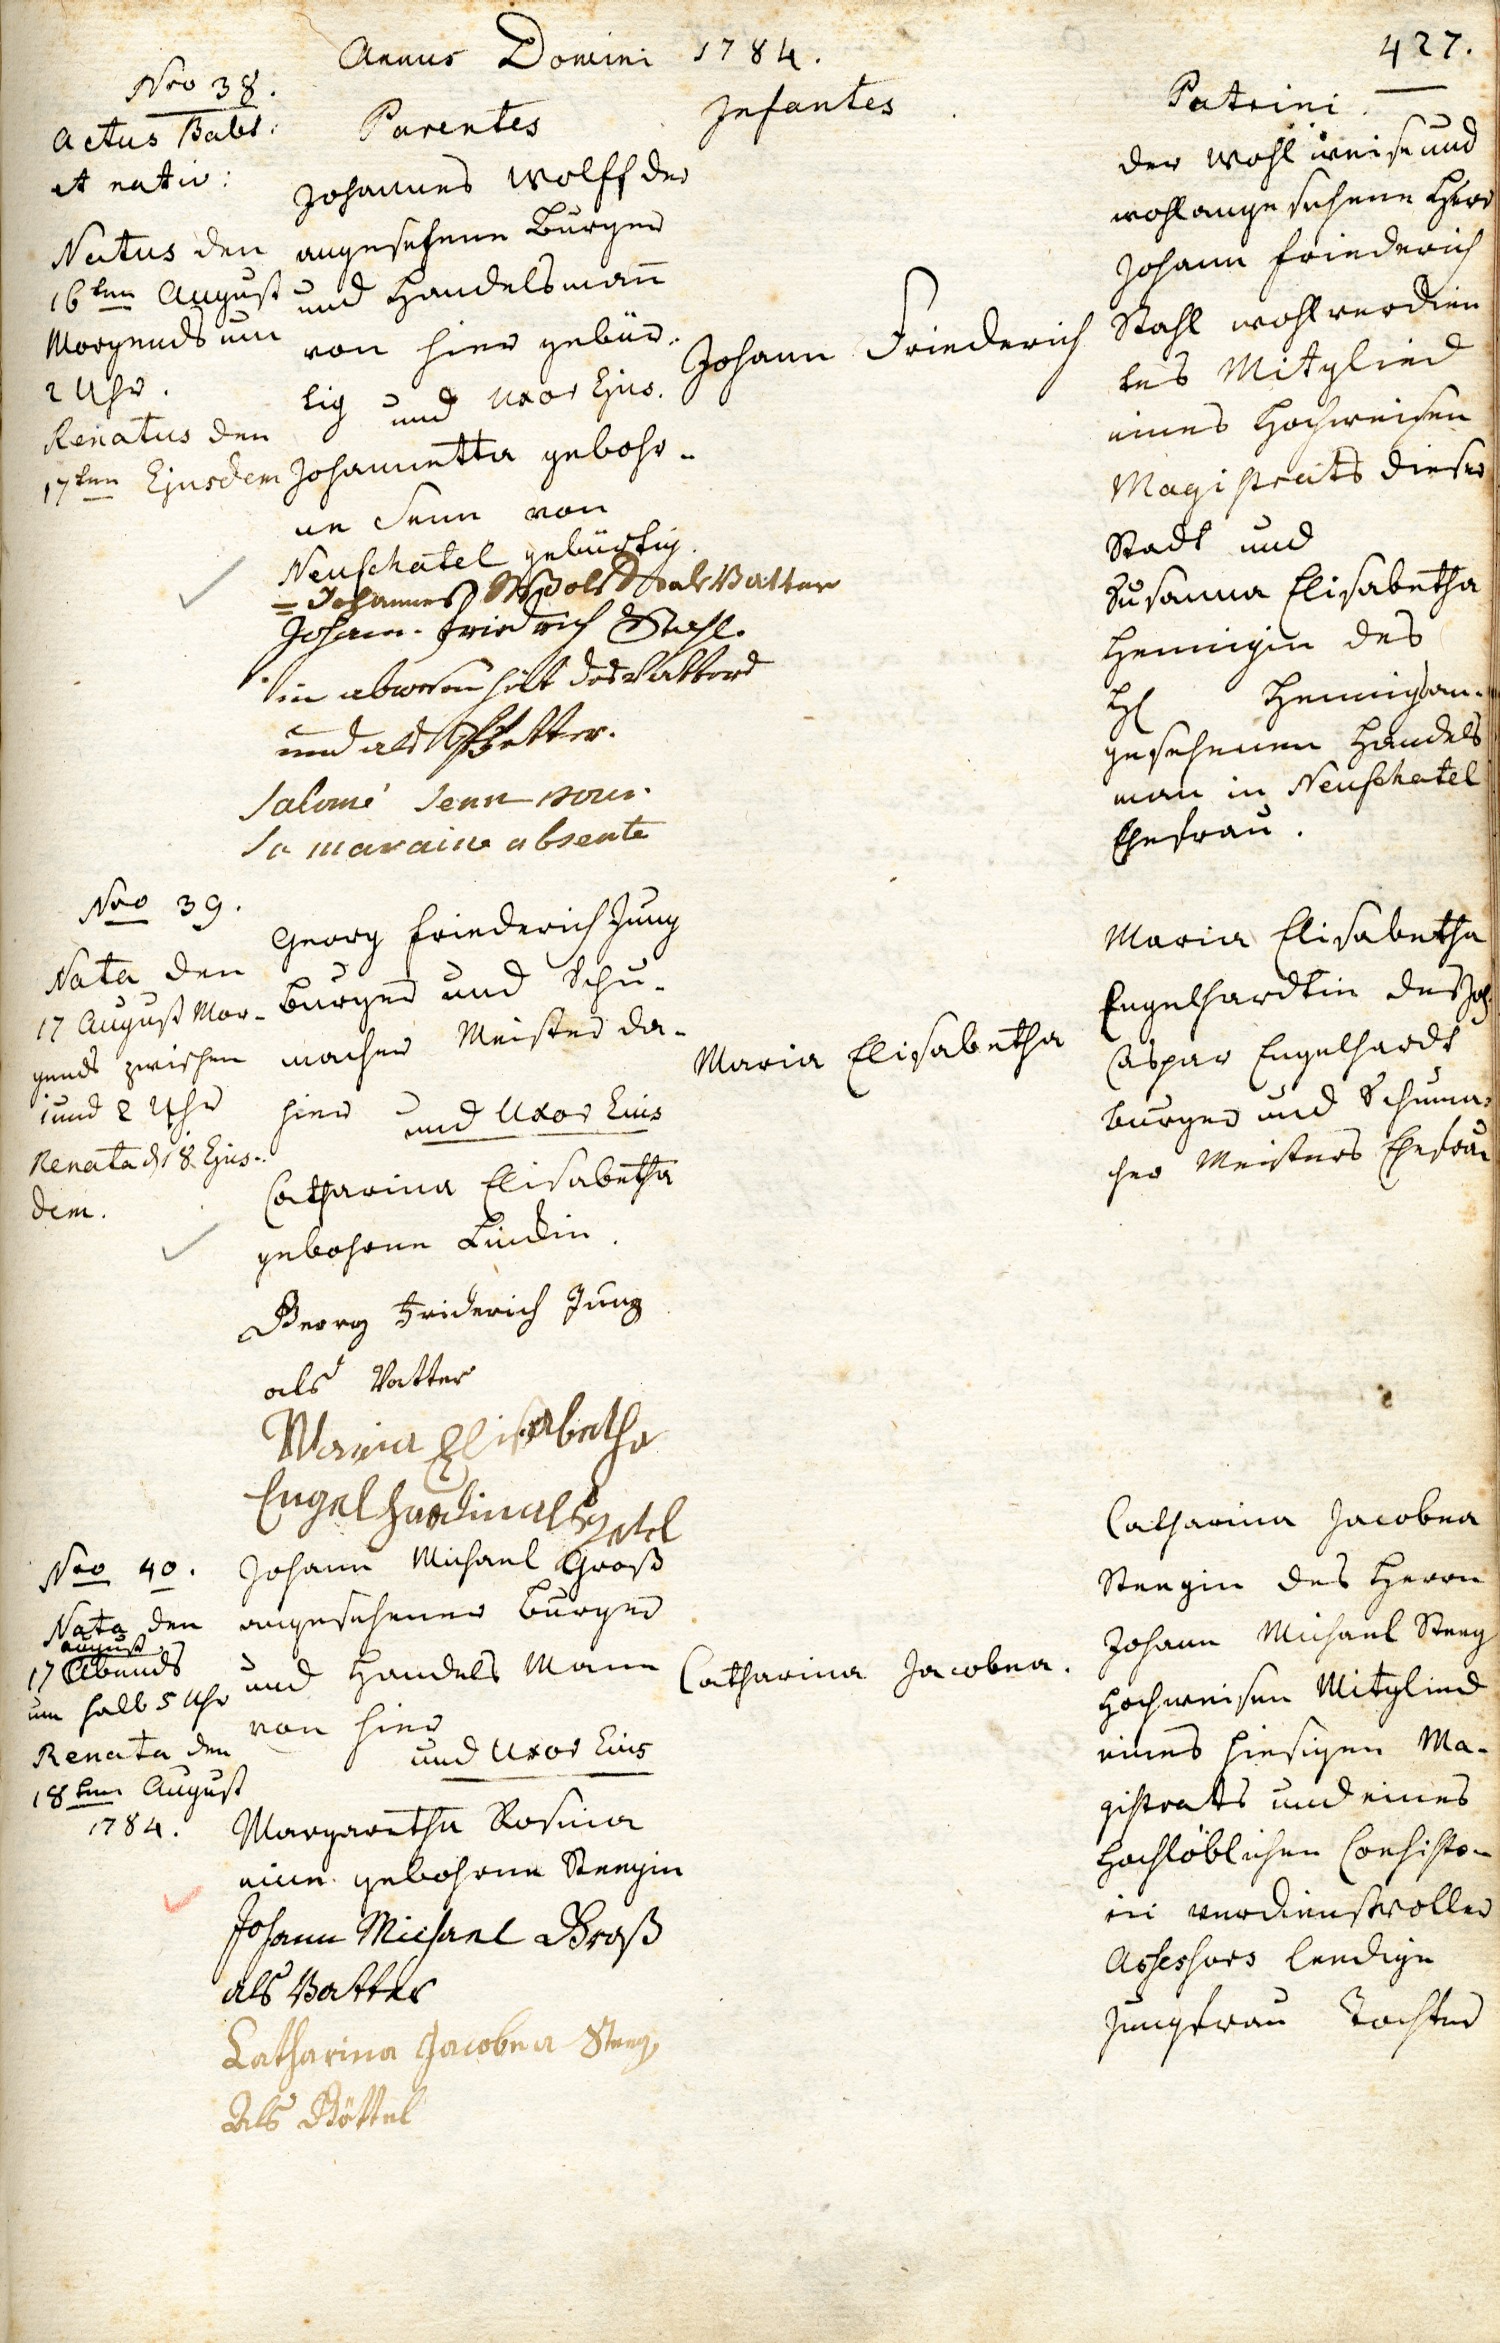 Annus Domini 1784.
427.
Nro 38.
Actus Babt:
et nativ:
Natus den
16ten August
Morgends um
2 Uhr.
Renatus den
17ten Ejusdem
Parentes
Johannes Wolff der
angesehene Burger
und Handelsmann
von hier gebür-
tig und Uxor Ejus.
Johannetta gebohr-
ne Senn von
Neufchatel gebürtig.
Johannes Wolf als Vatter
Johann Friedrich Stahl.
in abwesenheit des Vatters
und als Pfetter.
Salomé Senn pour
la maraine absente
Infantes
Johann Friederich
Patrini.
der Wohlweise und
wohlangesehene Herr
Johann Friederich
Stahl wohlverdien
tes Mitglied
eines Hochweisen
Magistrats dieser
Stadt und
Susanna Elisabetha
Hennigin des
H. Hennigs an-
gesehenen Handels
man in Neufchatel
Ehefrau.
Nro 39.
Nata den
17 August Mor-
gends zwischen
1 und 2 Uhr
Renata d 18 Ejus-
dem.
Georg Friederich Jung
Burger und Schu-
macher Meister da-
hier und Uxor Eius
Catharina Elisabetha
gebohrne Lindin.
Georg Friderich Jung
als Vatter
Maria Elisabetha
Engelhardin als Getel
Maria Elisabetha
Maria Elisabetha
Engelhardtin des Joh.
Caspar Engelhardt
Burger und Schuma-
cher Meisters Ehefrau
Nro 40.
Nata den
August
17 Abends
um halb 5 Uhr
Renata den
18ten August
1784.
Johann Michael Groß
angesehener Burger
und Handels Mann
von hier
und Uxor Eius
Margaretha Rosina
eine gebohrne Steegin
Johann Michael Groß
als Vatter
Catharina Jacobea Steeg
Als Göttel
Catharina Jacobea.
Catharina Jacobea
Steegin des Herrn
Johann Michael Steeg
Hochweisen Mitglied
eines hiesigen Ma-
gistrats und eines
Hochlöblichen Consisto-
rii verdienstvoller
Assessors leedige
Jungfrau Tochter